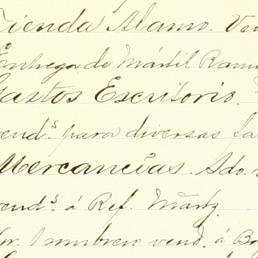 Tienda Alamo. Ven
Entrega de Mártil Ram
Gastos Escritorio.
vend.s para diversas fa
Mercancías. Sdo.
vend.s á Ref. Martz.
1 sombrero vend. á